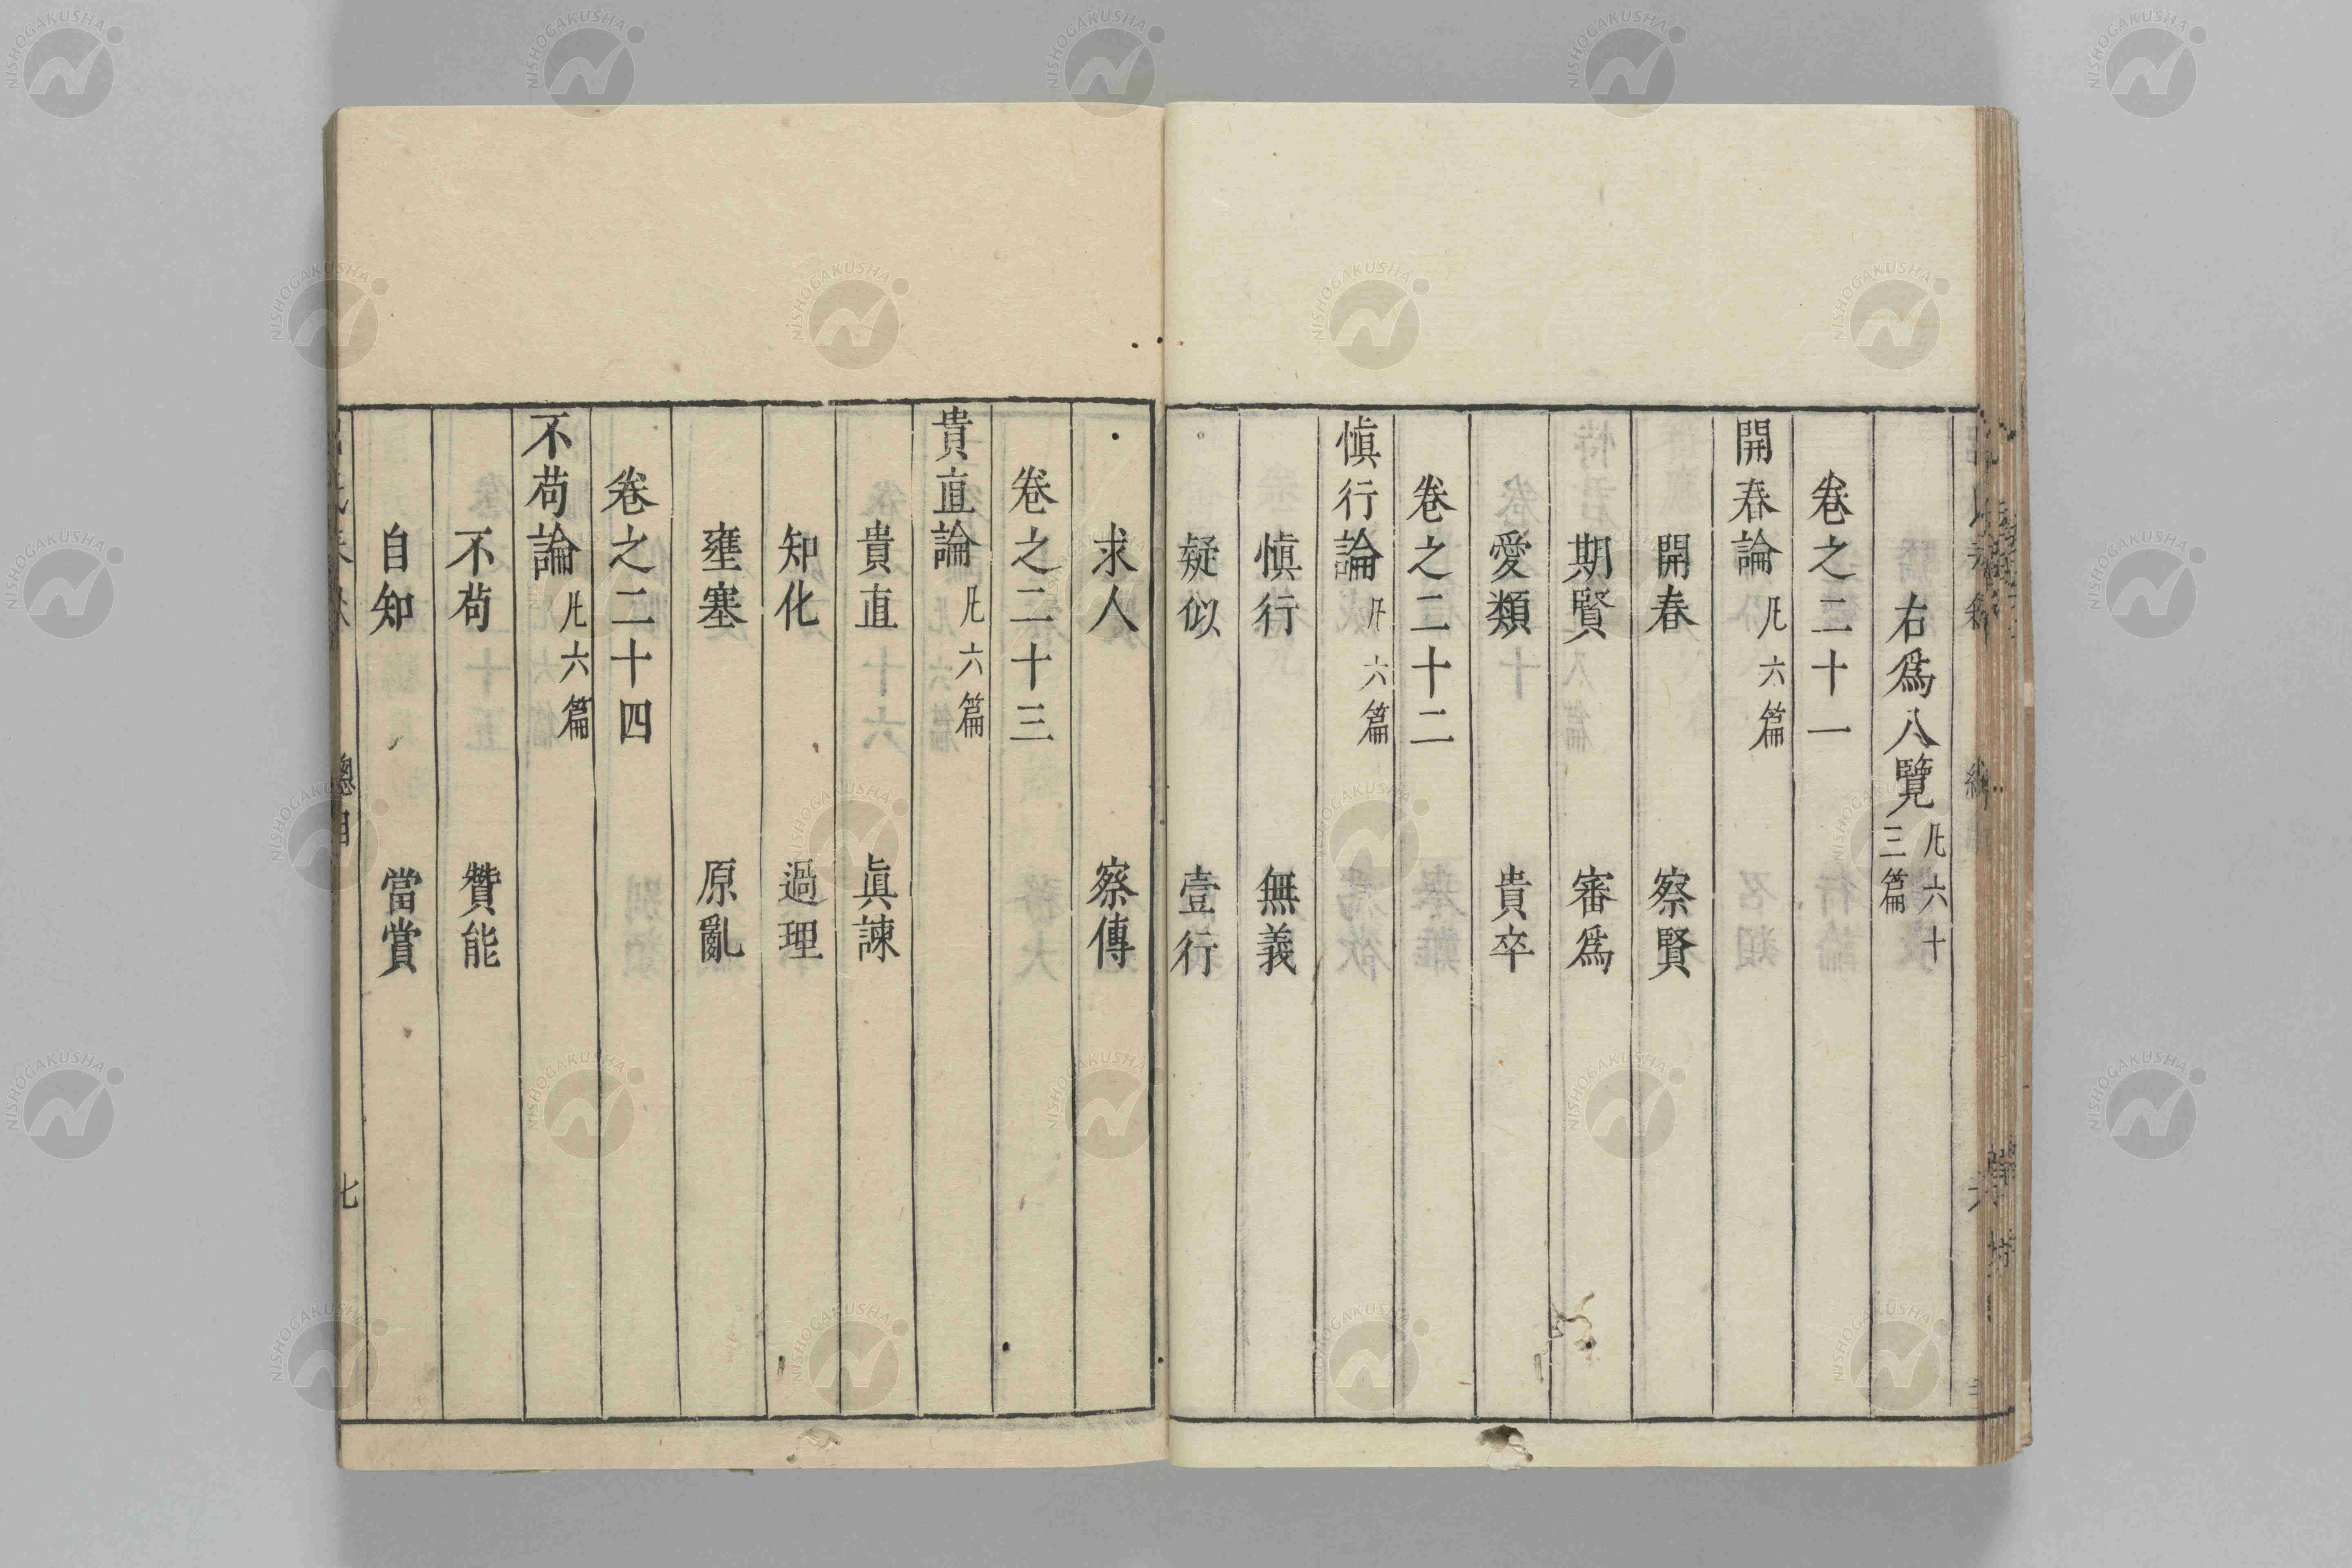 右爲八覽凡六十三篇
卷之二十一
開春論凡六篇
開春 察賢
期賢 審爲
愛類 貴卒
卷之二十二
愼行論凡六篇
愼行 無義
疑似 壹行
求人 察傳
卷之二十三
貴直論凡六篇
貴直 眞諫
知化 過理
壅塞 原亂
卷之二十四
不苟論凡六篇
不苟 贊能
自知 當賞
總目
七
NISHOGAKUSHA